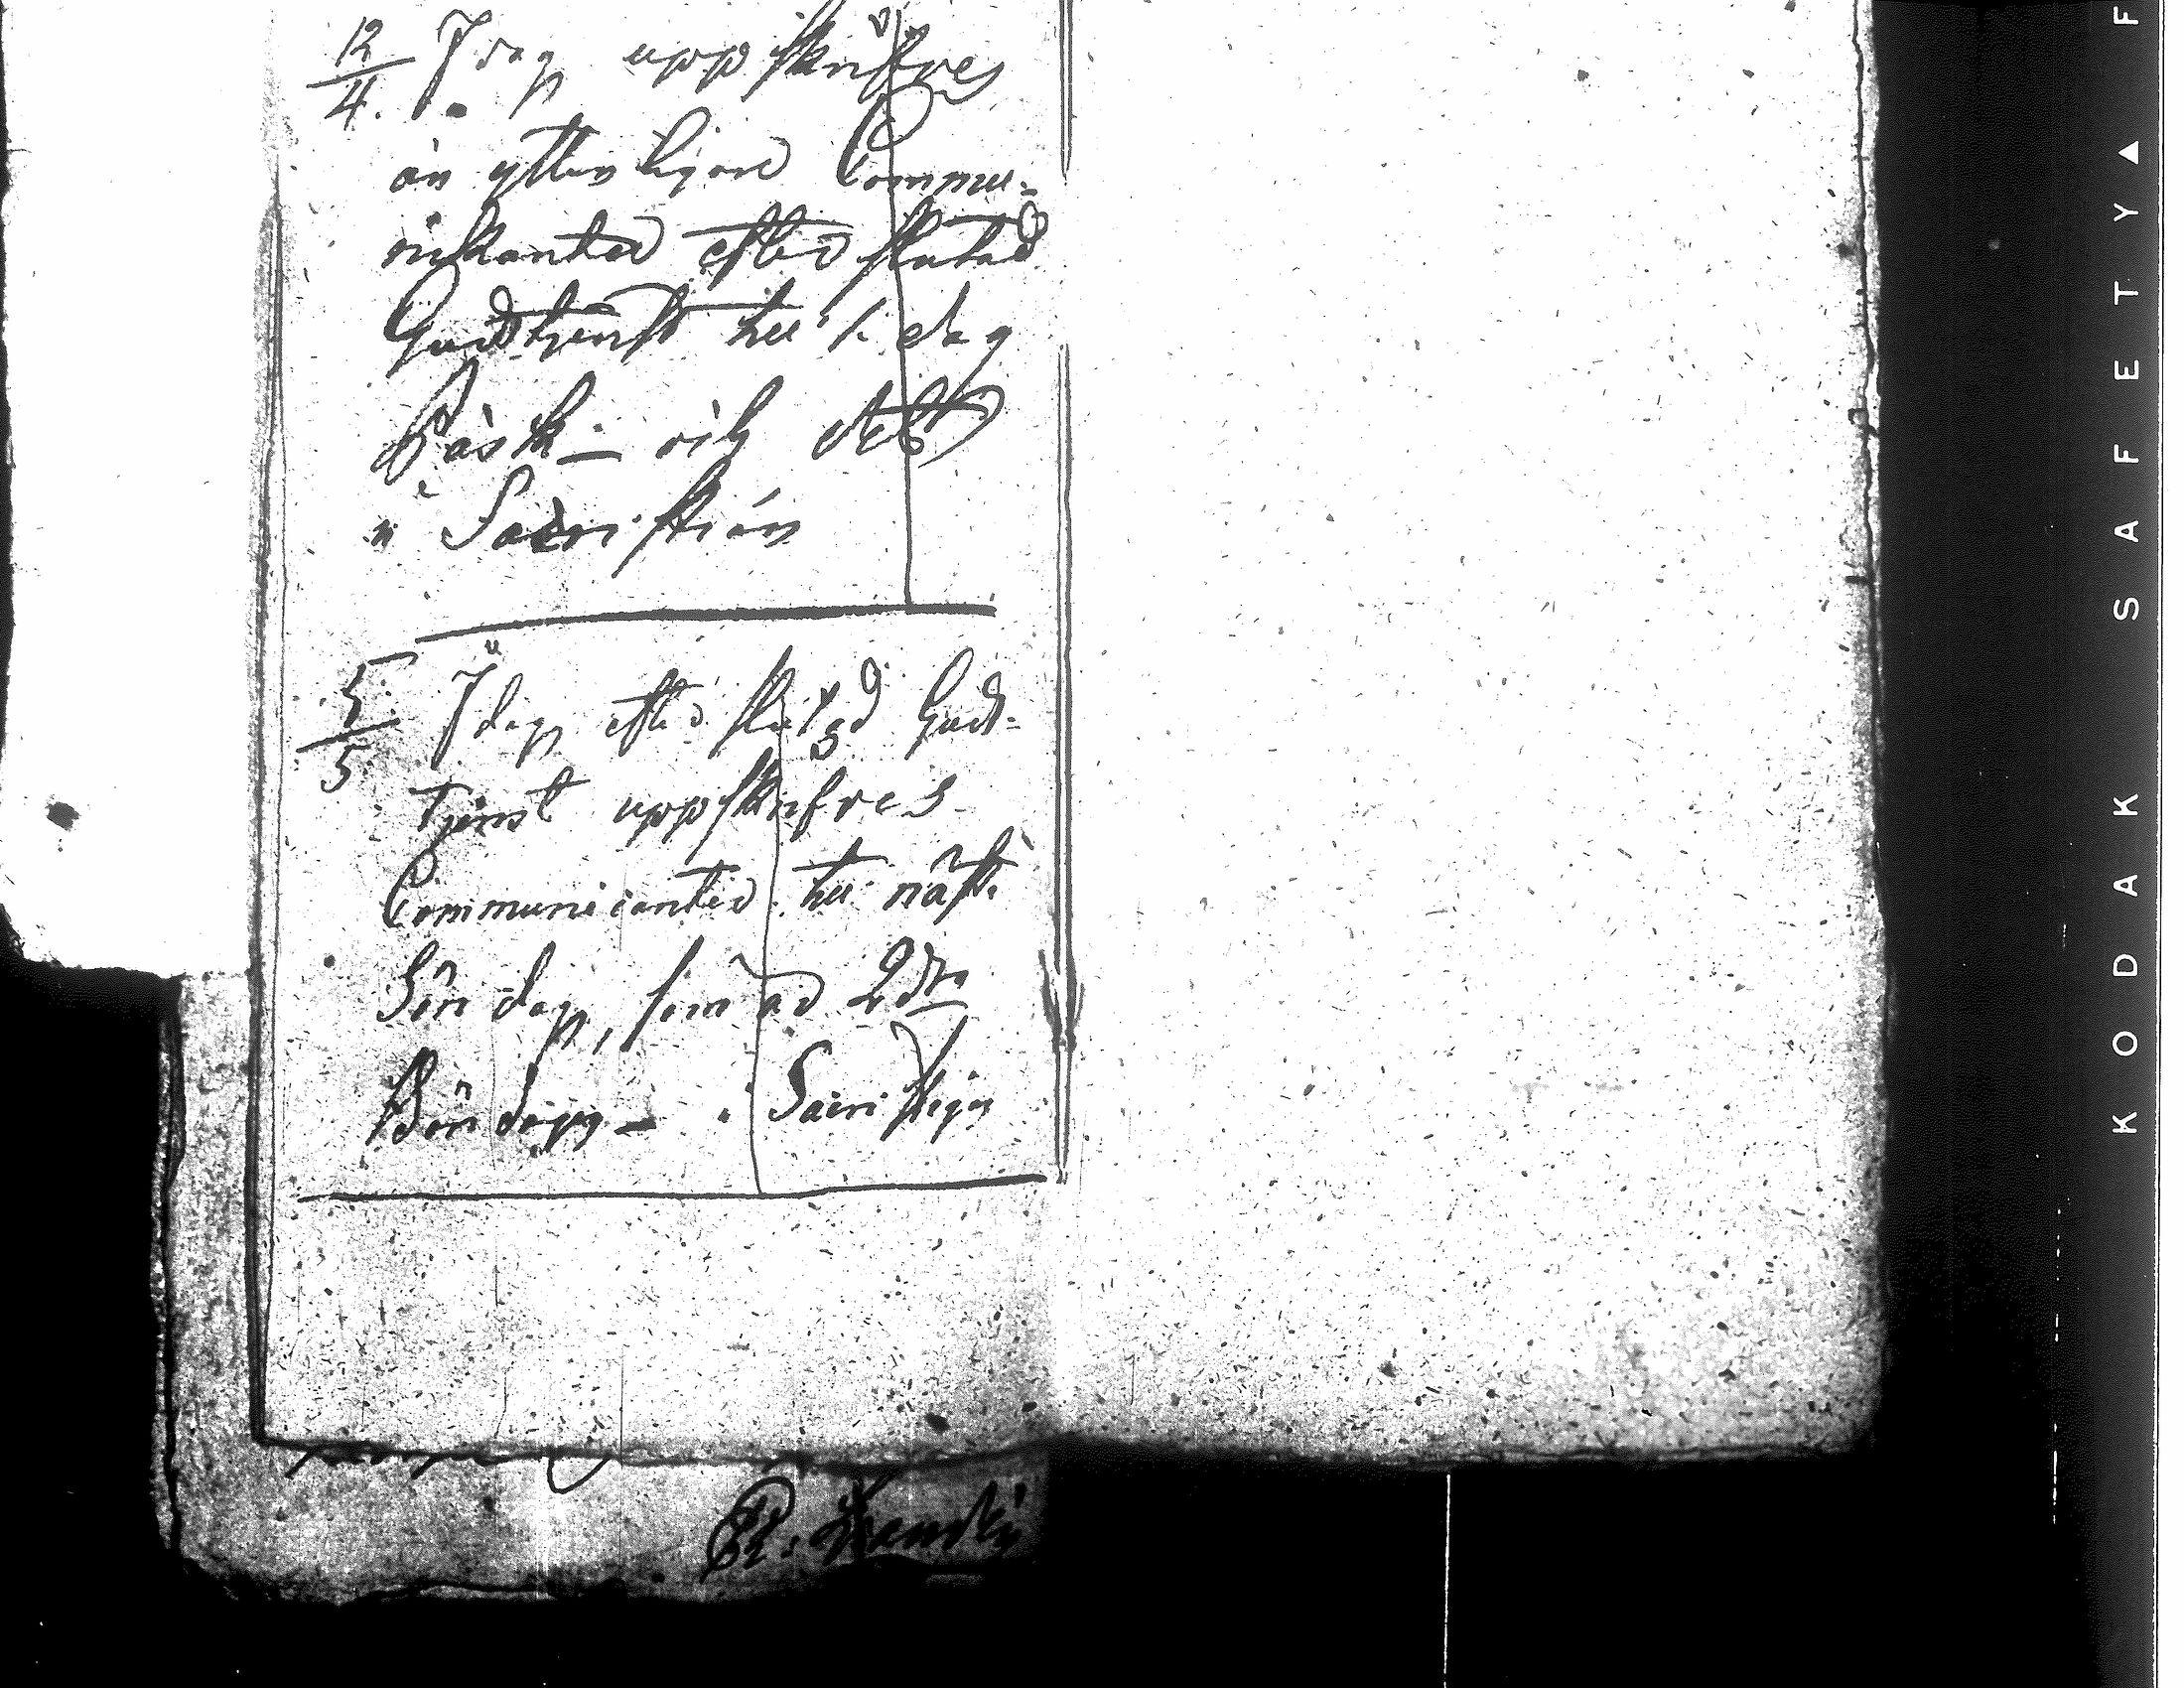 12/4. I dag uppskrifves
än ytterligare Commu-
nikanter efter slutad
Gudstjenst till 1. dag
Påsk – och det
i Sacristian
5/5 I dag efter slutad Guds-
tjenst uppskrifves
Communicanter till nästa
Söndag, som är 2dra
Böndag – i Sacristian
KODAK SAFETY ▲ F